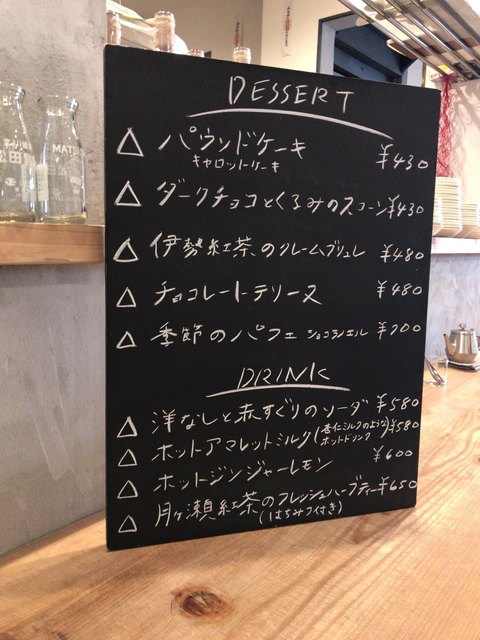 DESSERT
△ パウンドケーキ ¥430
キャロットケーキ
△ ダークチョコとくるみのスコーン ¥430
△ 伊勢紅茶のクレームブリュレ ¥480
△ チョコレートテリーヌ ¥480
△ 季節のパフェ ショコラシエル ¥700
DRINK
△ 洋なしと赤すぐりのソーダ ¥580
△ ホットアマレットミルク (杏仁ミルクのような ホットドリンク) ¥580
△ ホットジンジャーレモン ¥600
△ 月ヶ瀬紅茶のフレッシュハーブティー ¥650
(はちみつ付き)